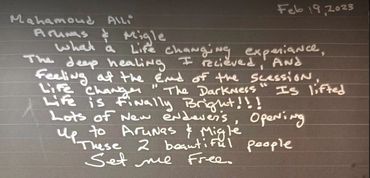 Feb 19, 2023
Mahamoud Alli:
Arunas & Migle
What a Life changing experiance,
The deep healing I recieved, And
Feeling at the End of the scession,
Life changer "The Darkness" Is lifted
Life is Finally Bright!!!
Lots of New endevers, Opening
up to Arunas & Migle
These 2 beautiful people
Set me Free.